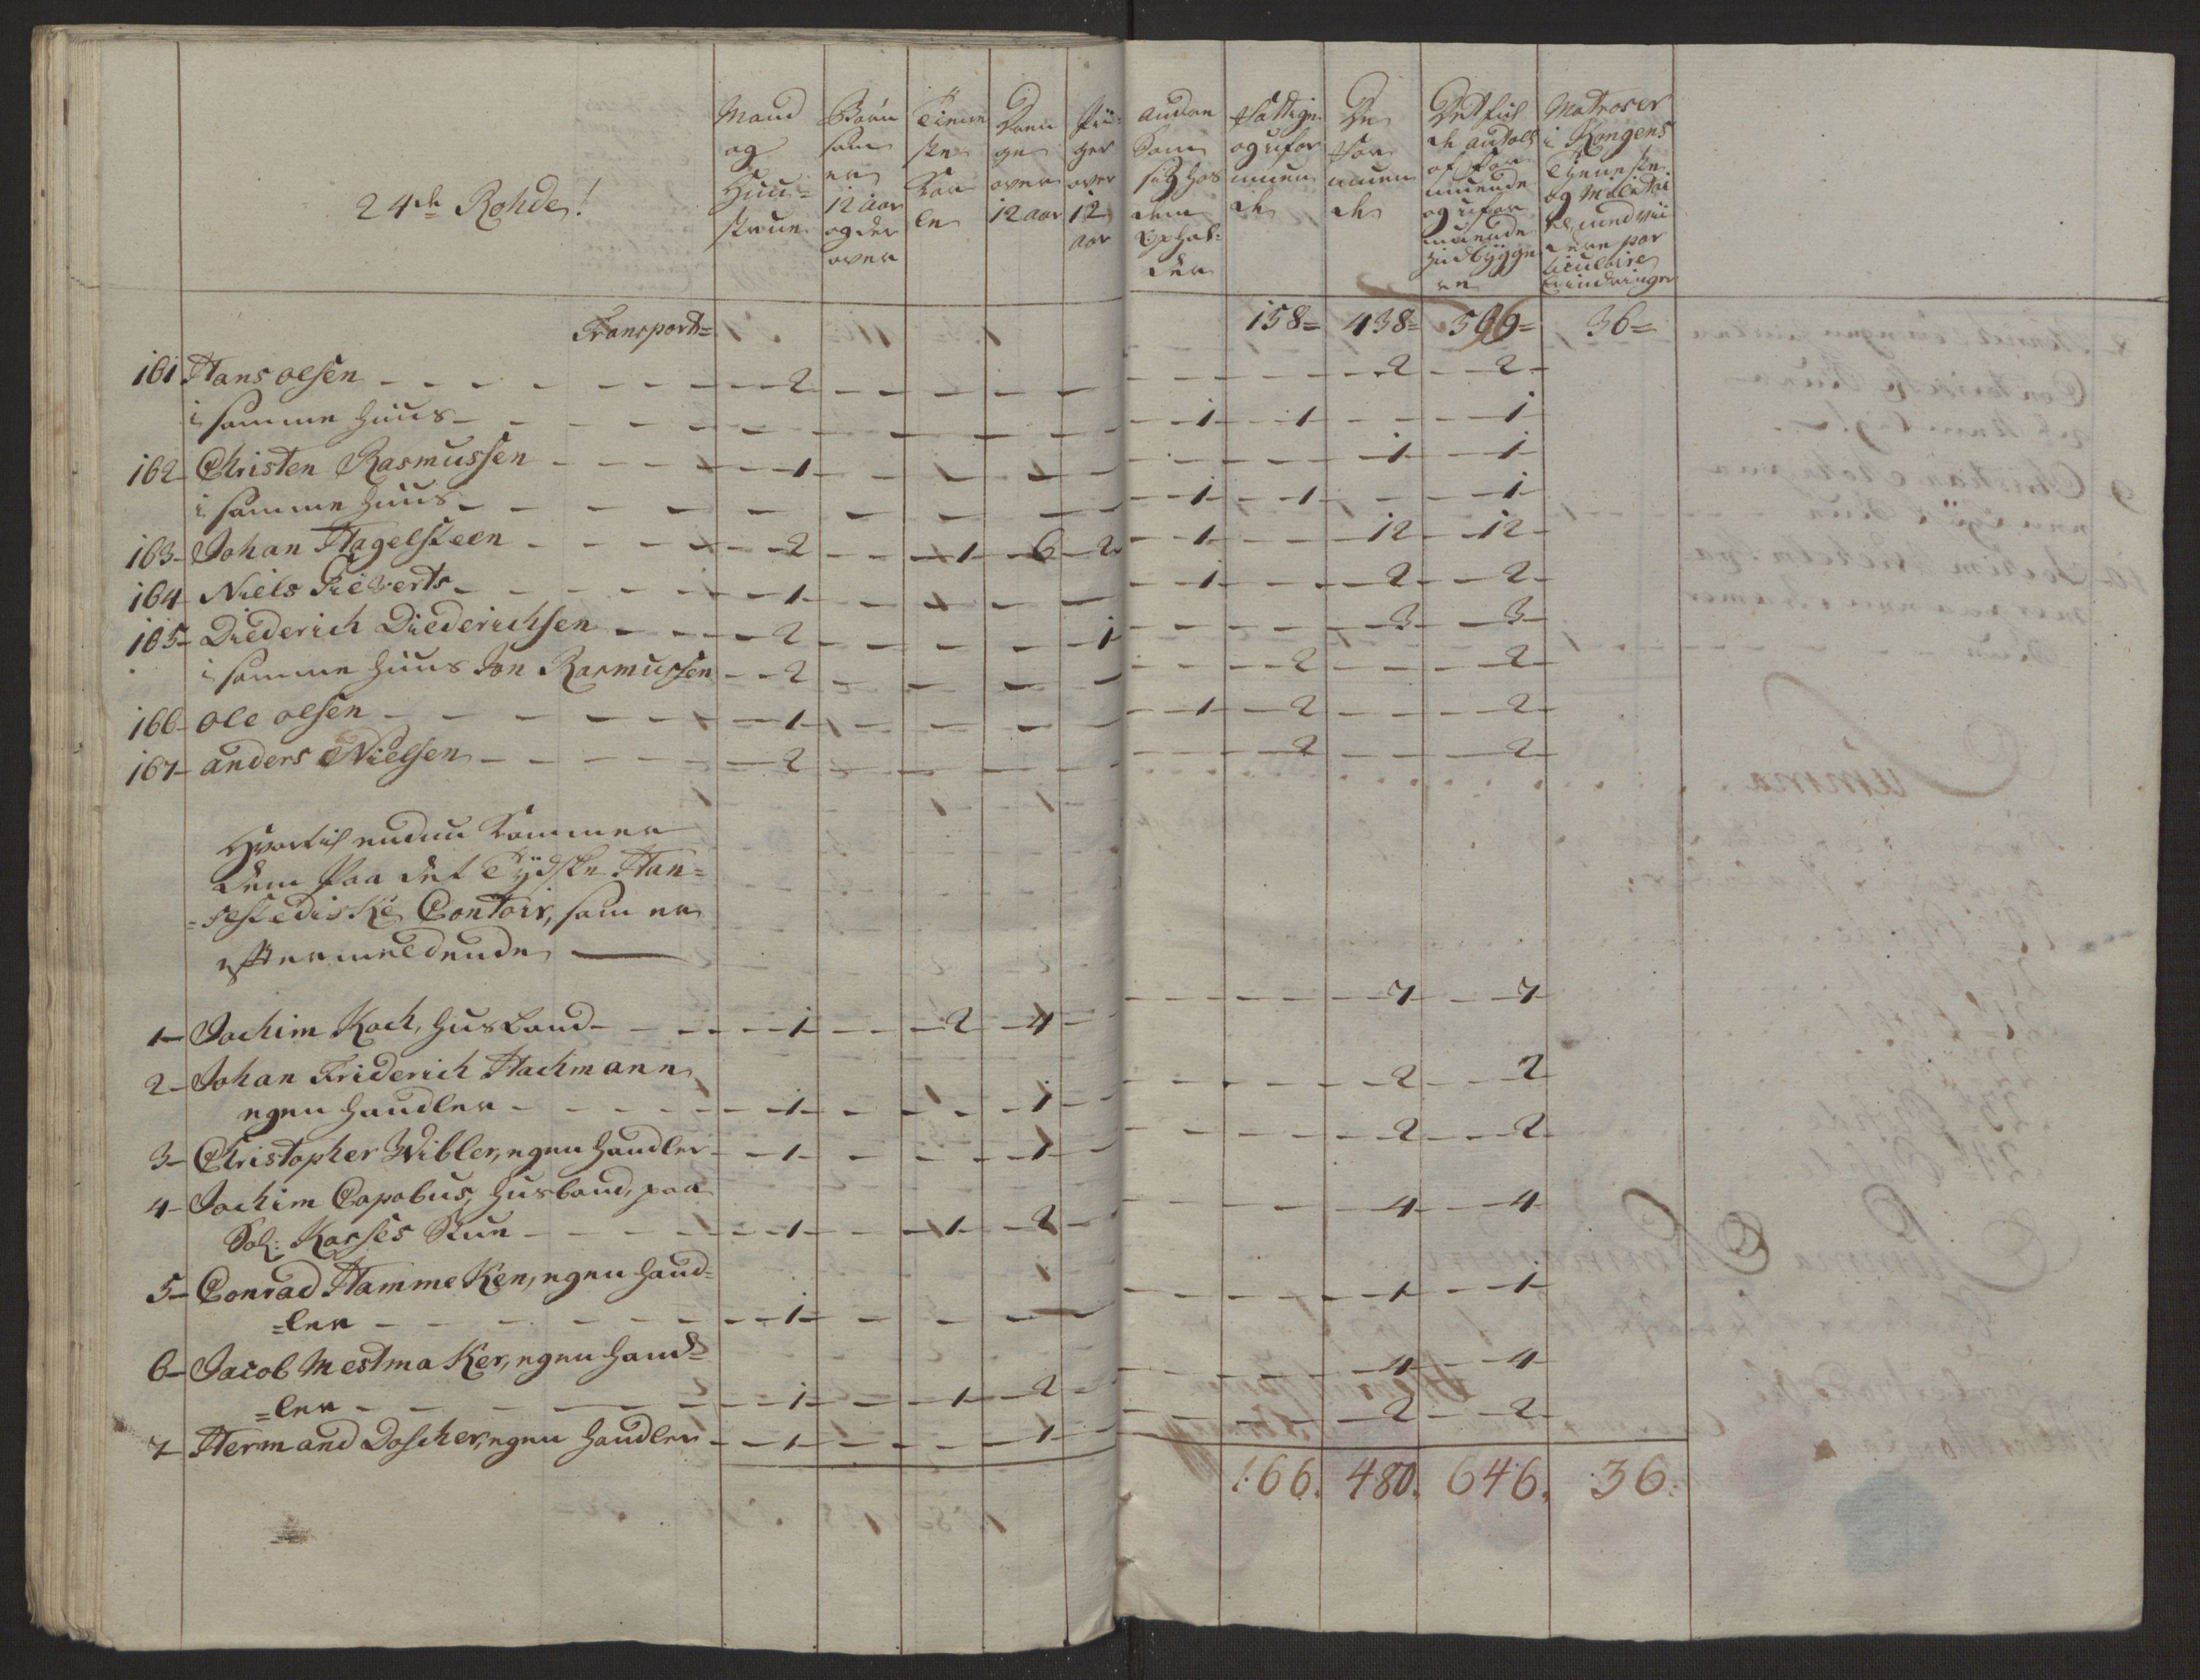 24de Rohde!
Mand og Huustrue
Børn som er 12 aar og der over
Tieneste Karle
Drenge over 12 aar
Piiger over 12 aar
andre som sig hos dem Ophol-der
Fattige og uformuende
De Formuende
Det fulde antall af Formuende og uformuende Indbyggere
Matroser i Kongens Tieneste og
Transport= 158= 438= 596= 36=
161 Hans olsen - 2 - - - - - - 2 - 2
i samme Huus - - - - - - 1 - 1 - - 1
162 Christen Rasmussen - 1 - - - - - - 1 - 1
i samme Huus - - - - - - 1 - 1 - - 1
163 Johan Hagelsteen - 2 - - 1 - 6 - 2 - 1 - - 12 - 12
164 Niels Sieverts - 1 - - - - - 1 - - 2 - 2
165 Diederich Diederichsen - 2 - - - - 1 - - - 3 - 3
i samme Huus Jon Rasmussen - 2 - - - - - - 2 - - 2
166 Ole olsen - 1 - - - - - 1 - 2 - - 2
167 anders Nielsen - 2 - - - - - - 2 - - 2
Hvortil endnu kommer
dem Paa det Tydske Han=
=sestediske Contoir, som er
efftermeldende
1 Jochim Koch, Husbond - 1 - - 2 - 4 - - - - 7 - 7
2 Johan Friderich Hachmann
egen handler - 1 - - - 1 - - - - 2 - 2
3 Christopher Wibler, egen handler - 1 - - - 1 - - - - 2 - 2
4 Jochim Capobus, Husbond, paa
Sal: Karses Stue - 1 - - 1 - 2 - - - - 4 - 4
5 Conrad Hammeken, egen hand=
=ler - 1 - - - - - - - 1 - 1
6 Jacob Mestmaker, egen hand=
=ler - 1 - - 1 - 2 - - - - 4 - 4
7 Hermand Doscher, egen handler - 1 - - - 1 - - - - 2 - 2
166. 480. 646. 36.